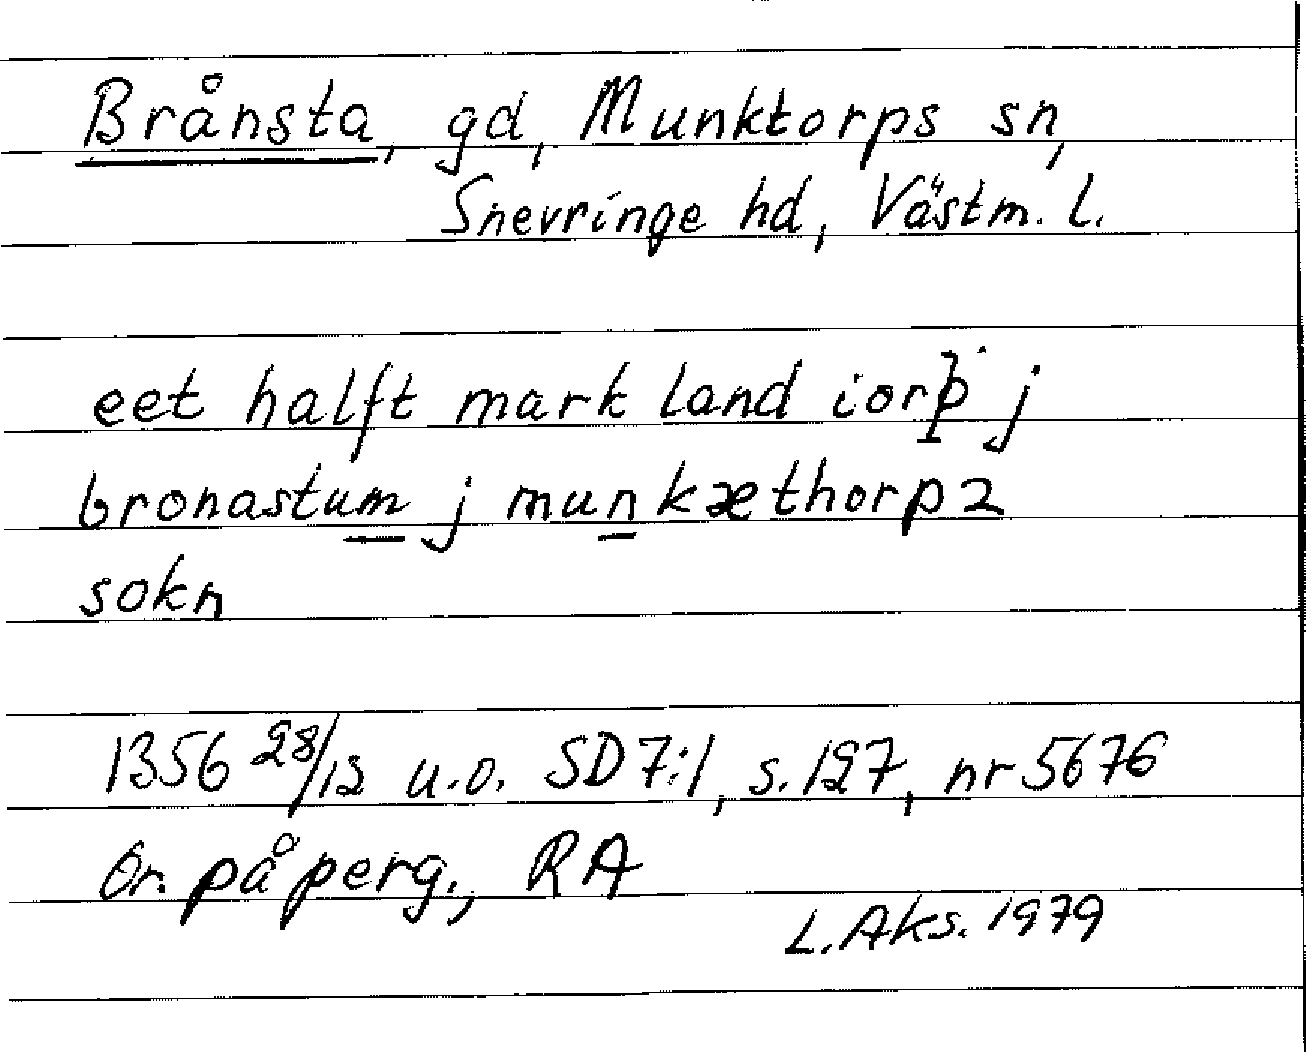 Brånsta, gd, Munktorps sn,
Snevringe hd, Västm. l.
eet halft mark land iorþ j
bronastum j munkæthorpz
sokn
1356 28/12 u.o. SD 7:1, s. 127, nr 5676
Or. på perg., RA
L. Aks. 1979